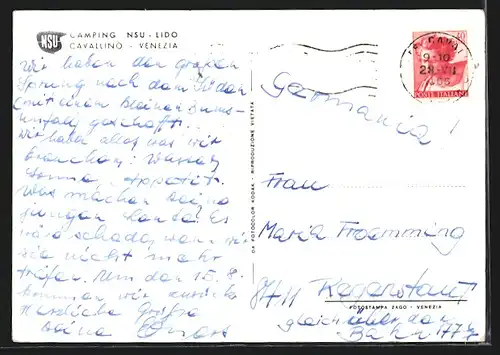 NSU
CAMPING NSU - LIDO
CAVALLINO - VENEZIA
Wir haben den großen
Sprung nach dem Süden
(mit einem kleinen Bums-
unfall) geschafft.
Wir haben alles was wir
brauchen: Wasser,
Sonne, Appetit.
Was machen deine
jungen Hunde? Es
wäre schade, wenn wir
sie nicht mehr
träfen. Um den 15. 8.
kommen wir zurück
Herzliche Grüße
deine
DA FOTOCOLOR KODAK - RIPRODUZIONE VIETATA
9-10
POSTE ITALIANE
Germania!
Frau
Maria Froemming
8411 
FOTOSTAMPA ZAGO - VENEZIA
gleich über der